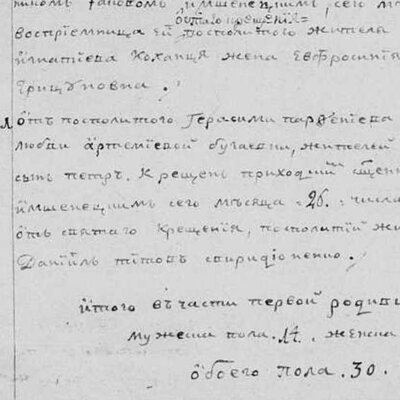 имшенецкимъ, сего
святаго крещенія
воспріемница ей посполитого жителя
игнатіева Коханця жена Евфросинія
Грицуновна.
Л отъ посполитого Герасима парфеніева
любви артеміевой бугаевни, жителей
сынъ петръ. Крещенъ приходкимъ
имшенецкимъ сего мѣсяца 26. числа
отъ святаго Крещенія, посполитій
Даніилъ титовъ свиридоненко.
итого въ части первой родивш
мужеска пола. 14. женска
обоего пола. 30.